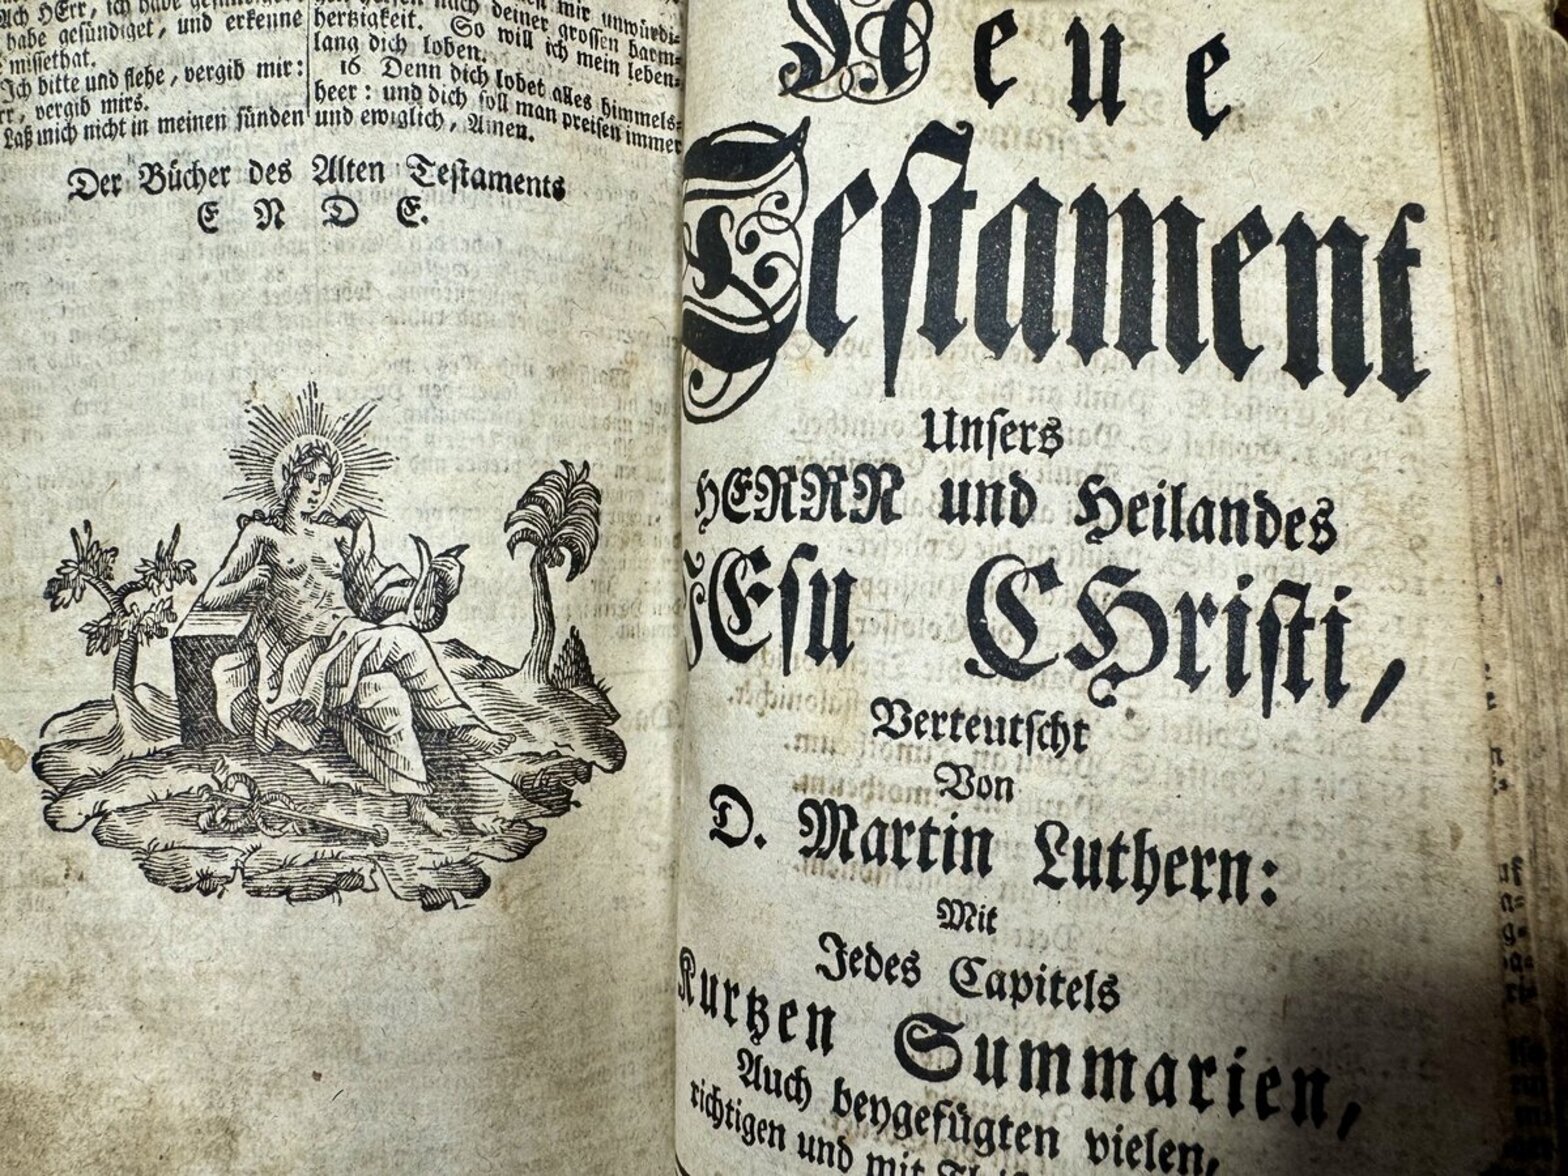 habe gesündiget, und erkenne
missethat.
Ich bitte und flehe, vergib mir:
vergib mirs.
Laß mich nicht in meinen sünden
deiner grossen barm-
hertzigkeit. So will ich mein leben-
lang dich loben.
16 Denn dich lobet alles himmels-
heer: und dich soll man preisen immer
und ewiglich, Amen.
Der Bücher des Alten Testaments
ENDE.
Neue
Testament
Unsers
HERRN und Heilandes
JEsu CHristi,
Verteutscht
Von
D. Martin Luthern:
Mit
Jedes Capitels
Kurtzen Summarien,
Auch beygefügten vielen,
richtigen und mit